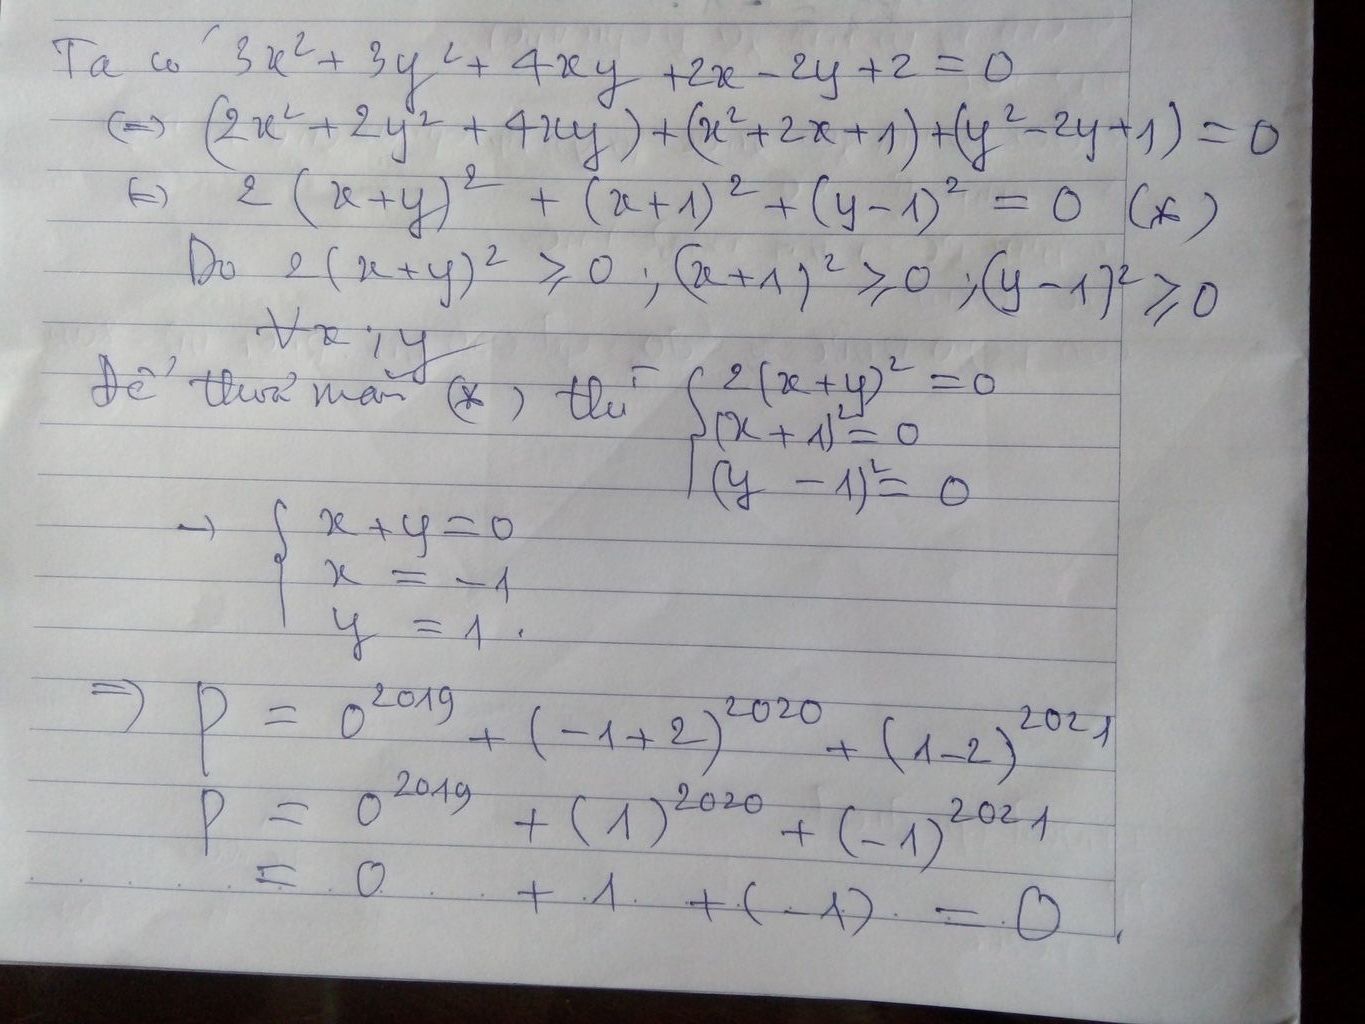 Ta có 3x² + 3y² + 4xy + 2x - 2y + 2 = 0
(=) (2x² + 2y² + 4xy) + (x² + 2x + 1) + (y² - 2y + 1) = 0
(=) 2(x + y)² + (x + 1)² + (y - 1)² = 0 (*)
Do 2(x + y)² ⩾ 0 ; (x + 1)² ⩾ 0 ; (y - 1)² ⩾ 0
∀x ; y
Để thoả mãn (*) thì { 2(x + y)² = 0
(x + 1)² = 0
(y - 1)² = 0
→ { x + y = 0
x = -1
y = 1.
=) P = 0²⁰¹⁹ + (-1 + 2)²⁰²⁰ + (1 - 2)²⁰²¹
P = 0²⁰¹⁹ + (1)²⁰²⁰ + (-1)²⁰²¹
= 0 + 1 + (-1) = 0.